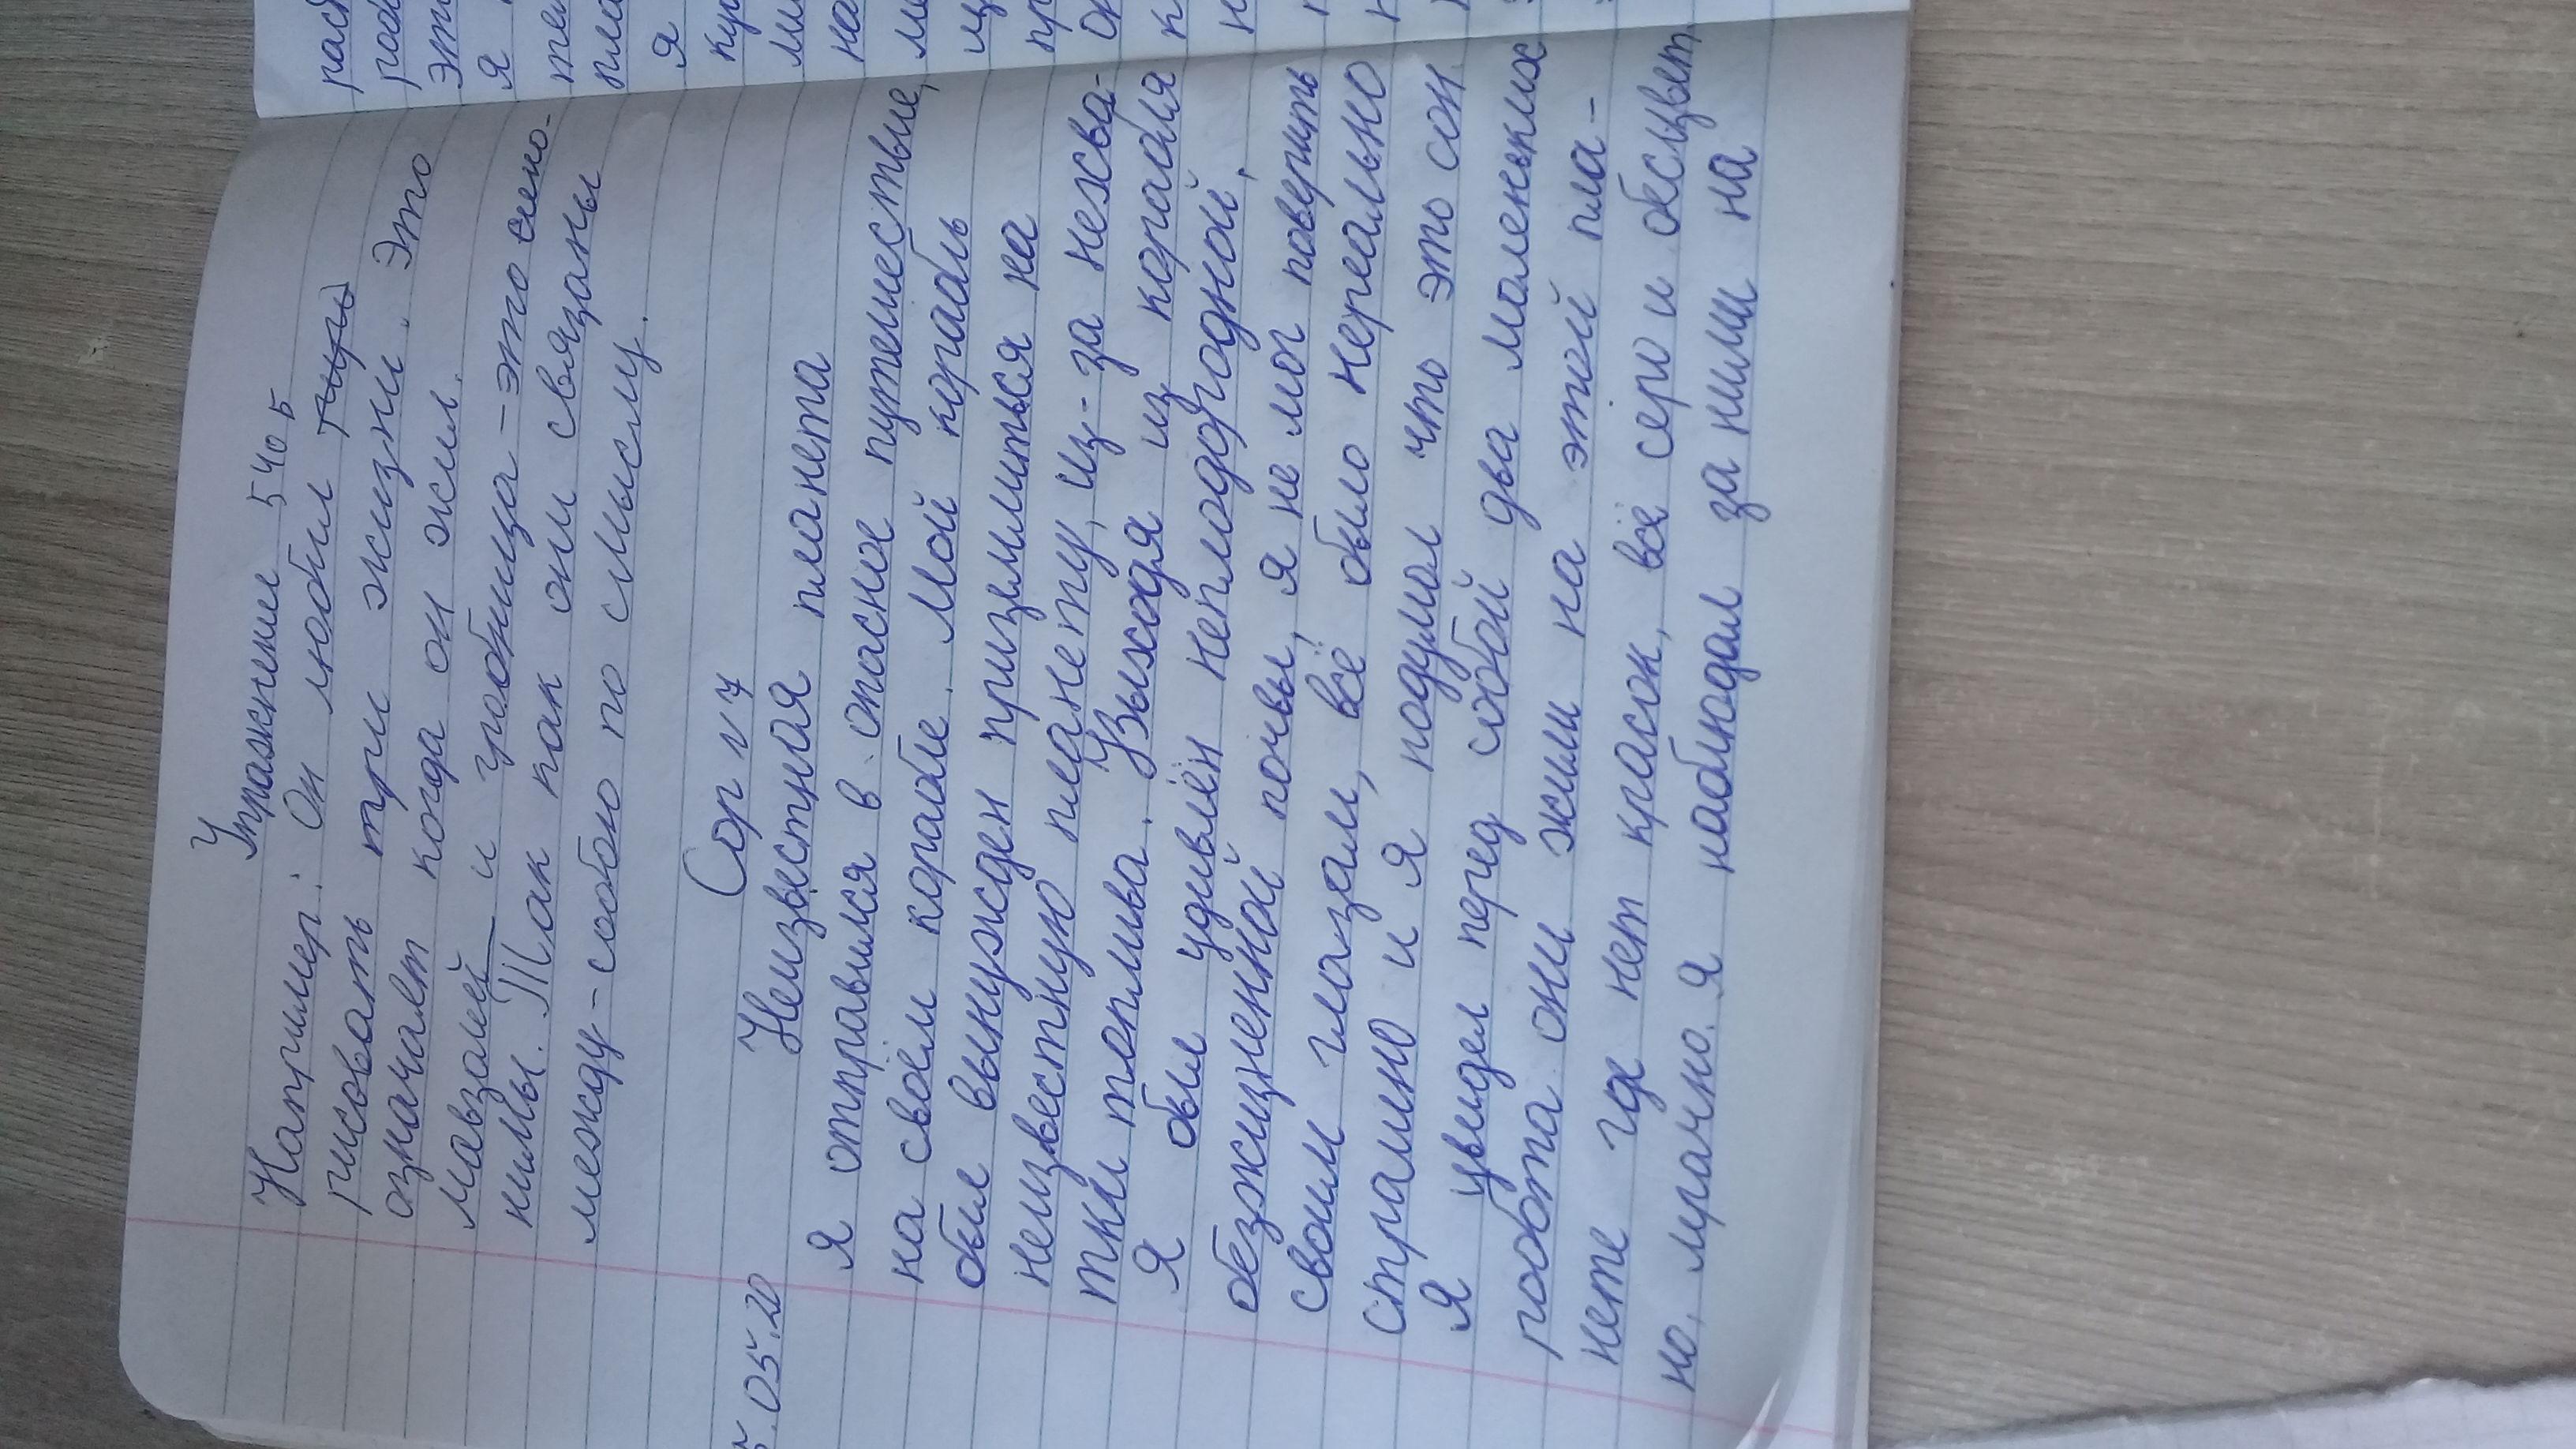 Упражнение 540 Б
Например: Он любил
рисовать при жизни. Это
означает когда он жил.
Мавзолей и гробница - это сино-
нимы. Так как они связаны
между-собою по смыслу.
Сор
.05.20
Неизвестная планета
Я отправился в опасное путешествие,
на своём корабле. Мой корабль
был вынужден приземлиться на
неизвестную планету, из-за нехва-
тки топлива. Выходя из корабля
Я был удивлён неплодородной,
безжизненной почвы, я не мог поверить
своим глазам, всё было нереально
страшно и я подумал что это сон.
Я увидел перед собой два маленьких
робота они жили на этой пла-
нете где нет красок, всё серо и обесцвет-
но, мрачно. Я наблюдал за ними на
раст
роб
эт
я
те
пла
я
ку
ми
на
ме
щ
пр
от
к
н